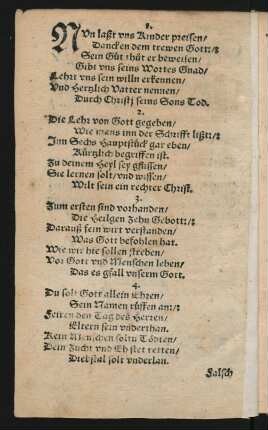 1.
NUn laßt vns Kinder preisen/
Dancken dem trewen Gott:/:
Sein Güt thut er beweisen/
Gibt vns seins Wortes Gnad/
Lehrt vns sein willn erkennen/
Vnd Hertzlich Vatter nennen/
Durch Christi seins Sons Tod.
2.
Die Lehr von Gott gegeben/
Wie mans inn der Schrifft lißt:/:
Inn Sechs Hauptstück gar eben/
Kürtzlich begriffen ist.
Zu deinem Heyl sey gflissen/
Sie lernen solt/vnd wissen/
Wilt sein ein rechter Christ.
3.
Zum ersten sind vorhanden/
Die Heilgen Zehn Gebott:/:
Darauß fein wirt verstanden/
Was Gott befohlen hat.
Wie wir hie sollen streben/
Vor Gott vnd Menschen leben/
Das es gfall vnserm Gott.
4.
Du solt Gott allein Ehren/
Sein Namen rüffen an:/:
Feiren den Tag des Herren/
Eltern sein vnderthan.
Kein Menschen soltu Tödten/
Dein Zucht vnd Ehstet retten/
Diebstal solt vnderlan.
Falsch